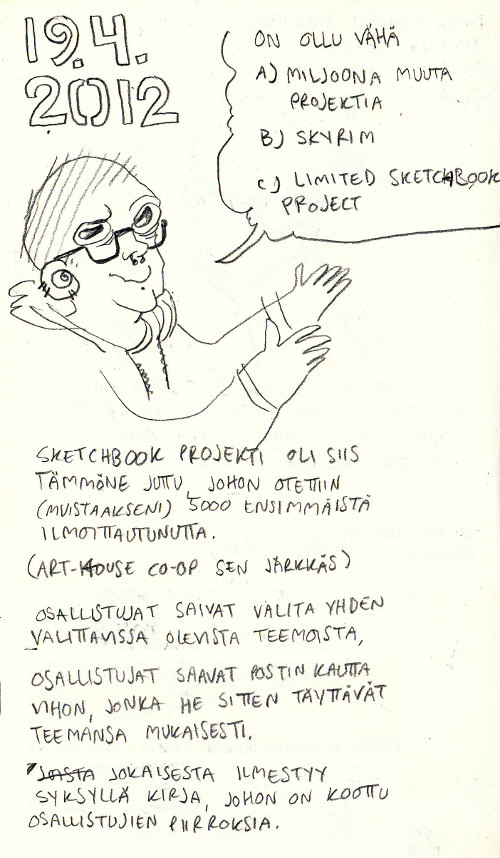 19.4.
2012
ON OLLU VÄHÄ
A) MILJOONA MUUTA
PROJEKTIA
B) SKYRIM
C) LIMITED SKETCHBOOK
PROJECT
SKETCHBOOK PROJEKTI OLI SIIS
TÄMMÖNE JUTTU, JOHON OTETTIIN
(MUISTAAKSENI) 5000 ENSIMMÄISTÄ
ILMOITTAUTUNUTTA.
(ART-HOUSE CO-OP SEN JÄRKKÄS)
OSALLISTUJAT SAIVAT VALITA YHDEN
VALITTAVISSA OLEVISTA TEEMOISTA,
OSALLISTUJAT SAAVAT POSTIN KAUTTA
VIHON, JONKA HE SITTEN TÄYTTÄVÄT
TEEMANSA MUKAISESTI.
JOSTA JOKAISESTA ILMESTYY
SYKSYLLÄ KIRJA, JOHON ON KOOTTU
OSALLISTUJIEN PIIRROKSIA.